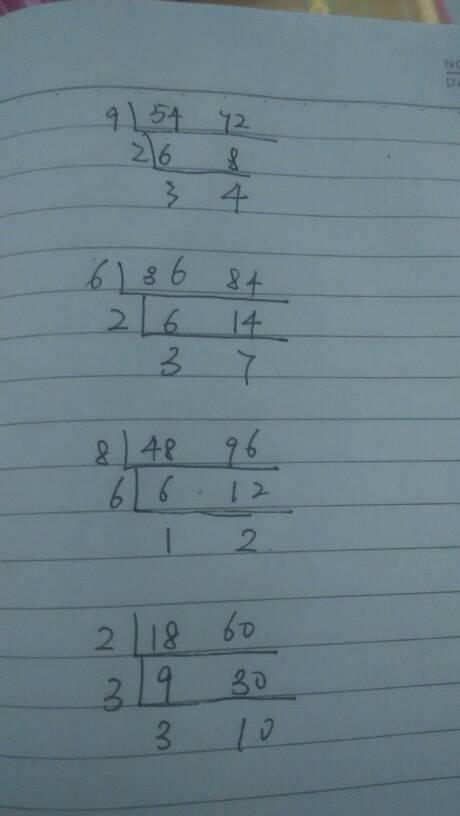 NO
DA
9 54 72
2 6 8
3 4
6 36 84
2 6 14
3 7
8 48 96
6 6 12
1 2
2 18 60
3 9 30
3 10